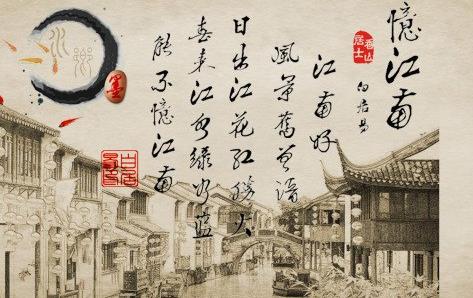 憶江南
香山居士
白居易
江南好
風景舊曾諳
日出江花紅勝火
春来江水綠如藍
能不憶江南
水鄉
墨
白居易印